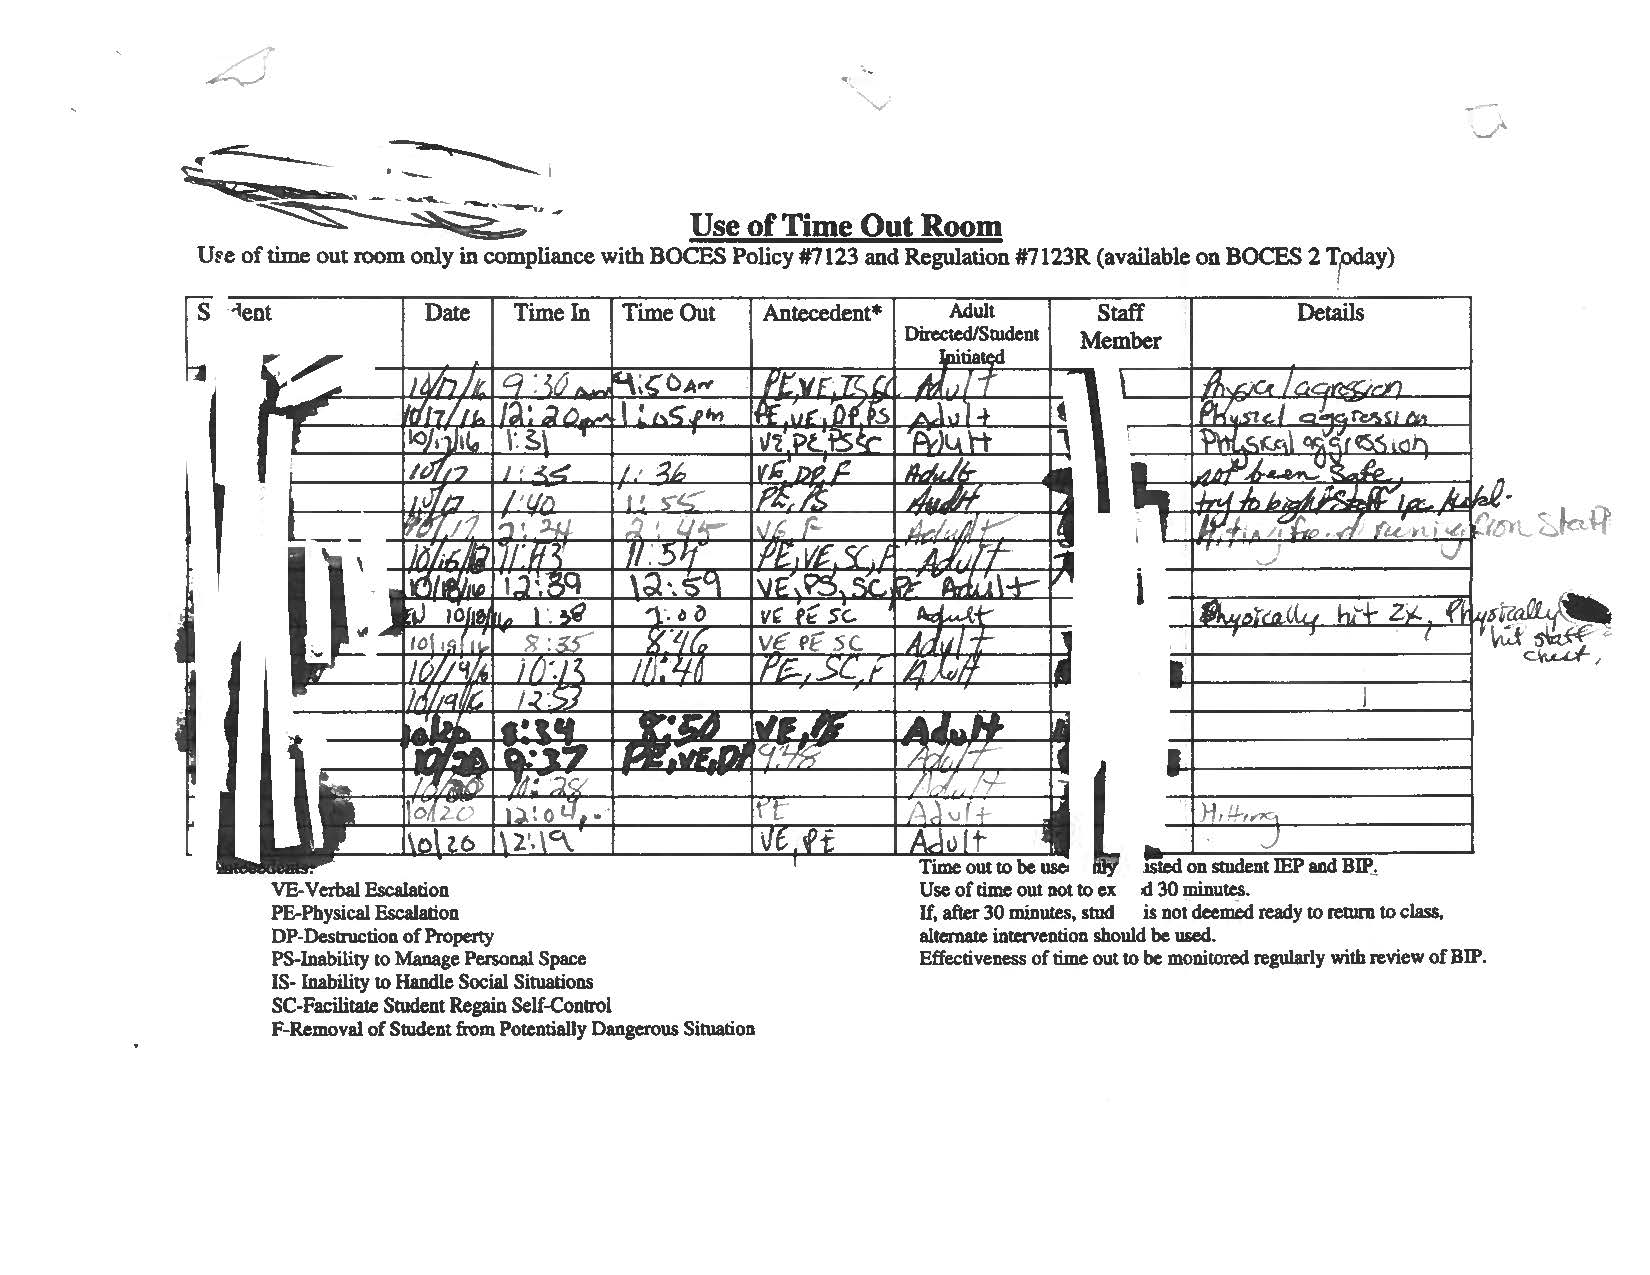 Use of Time Out Room
Use of time out room only in compliance with BOCES Policy #7123 and Regulation #7123R (available on BOCES 2 Today)
S dent Date Time In Time Out Antecedent* Adult Directed/Student Initiated Staff Member Details
10/17/16 9:30 am 9:50 AM PE,VE,IS,SC Adult Physical agression
10/17/16 12:20pm 1:05pm PE,VE,DP,PS Adult Physicl aggression
10/17/16 1:31 VE,PE,PS,SC Adult Physical aggression
10/17 1:35 1:36 VE,DP,F Adult not been safe,
10/17 1:40 1:55 PE,PS Adult try to bight staff
10/17 2:24 2:45 VE F Adult staff
11:43 11:54 PE,VE,SC,F Adult
10/18/16 12:39 12:59 VE,PS,SC,PE Adult
10/18/16 1:38 2:00 VE PE SC Adult Physically hit 2x, Physically
hit staff
chest,
10/19/16 8:35 8:46 VE PE SC Adult
10/19/16 10:13 10:40 PE,SC,F Adult
10/19/16 12:53
10/20 8:34 8:50 VE,PE Adult
10/20 9:37 PE,VE,DP 9:48 Adult
10/20 Adult
10/20 12:04 PE Adult Hitting
10/20 12:19 VE,PE Adult
Antecedents:
VE-Verbal Escalation
PE-Physical Escalation
DP-Destruction of Property
PS-Inability to Manage Personal Space
IS- Inability to Handle Social Situations
SC-Facilitate Student Regain Self-Control
F-Removal of Student from Potentially Dangerous Situation
Time out to be use listed on student IEP and BIP.
Use of time out not to ex d 30 minutes.
If, after 30 minutes, stud is not deemed ready to return to class,
alternate intervention should be used.
Effectiveness of time out to be monitored regularly with review of BIP.